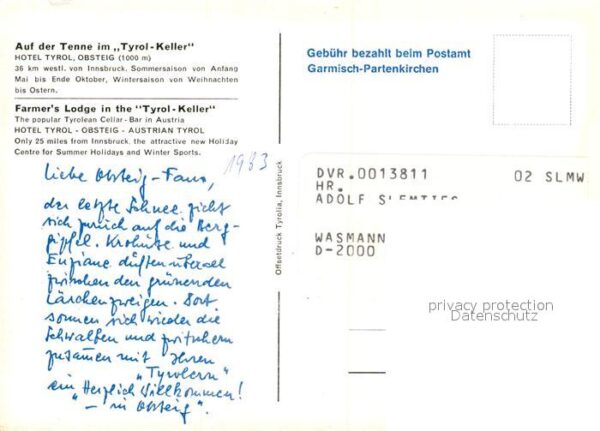 Auf der Tenne im „Tyrol-Keller"
HOTEL TYROL, OBSTEIG (1000 m)
36 km westl. von Innsbruck. Sommersaison von Anfang
Mai bis Ende Oktober, Wintersaison von Weihnachten
bis Ostern.
Farmer's Lodge in the "Tyrol-Keller"
The popular Tyrolean Cellar-Bar in Austria
HOTEL TYROL - OBSTEIG - AUSTRIAN TYROL
Only 25 miles from Innsbruck, the attractive new Holiday
Centre for Summer Holidays and Winter Sports.
1983
Liebe Obsteig-Fans,
der letzte Schnee zieht
sich zurück auf die Berg-
gipfel. Krokusse und
Enziane duften überall
zwischen den grünenden
Lärchenzweigen. Dort
sonnen sich wieder die
Schwalben und zwitschern
zusammen mit Ihren
„Tyrolern"
ein „Herzlich Willkommen!
– in Obsteig".
Offsetdruck Tyrolia, Innsbruck
Gebühr bezahlt beim Postamt
Garmisch-Partenkirchen
DVR.0013811 02 SLMW
HR.
ADOLF
WASMANN
D-2000
privacy protection
Datenschutz